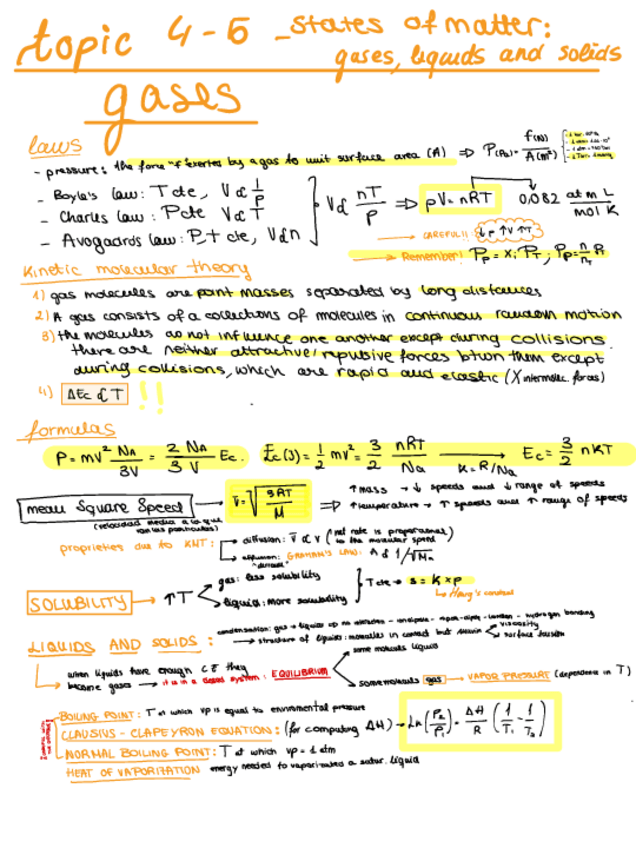 topic 4-5 _ States of matter:
gases, liquids and solids
gases
laws
- pressure: the force "f" exerted by a gas to unit surface area (A) ⇒ P(Pa) = f(N) / A(m²)
- Boyle's law: T cte, V ∝ 1/P
- Charles law: P cte V ∝ T
- Avogaards law: P, T cte, V ∝ n
V ∝ nT/P ⇒ pV = nRT 0,082 atm L / mol K
→ CAREFUL!! ↓P ↑V ↑T
→ Remember! Pp = Xi PT ; Pp = n/nT R
Kinetic molecular theory
1) gas molecules are point masses separated by long distances
2) A gas consists of a collections of molecules in continuous random motion
3) the molecules do not influence one another except during collisions.
there are neither attractive/repulsive forces btwn them except
during collisions, which are rapid and elastic (X intermolec. forces)
4) ΔEc ∝ T !!
formulas
P = mv² NA / 3V = 2/3 NA/V Ec. Ec(J) = 1/2 mv² = 3/2 nRT/Na → K = R/Na Ec = 3/2 nKT
mean Square Speed → v̄ = √3RT/M
↑ mass → ↓ speeds and ↓ range of speeds
⇒ ↑ temperature → ↑ speeds and ↑ range of speeds
(velocidad media a la que van las partículas)
proprieties due to KMT:
→ diffusion: v̄ ∝ v (net rate is proporcional to the molecular speed
→ effusion: GRAHAM'S LAW: A ∝ 1/√Mn
SOLUBILITY → ↑T
gas: less solubility
liquid: more solubility
T cte → s = K × p
→ Henry's constant
LIQUIDS AND SOLIDS:
→ structure of liquids: molecules in contact but
viscosity
surface tension
when liquids have enough CE they
become gases → it is in a closed system: EQUILIBRIUM
some molecules liquids
some molecules gas → VAPOR PRESSURE (dependence in T)
BOILING POINT: T at which vp is equal to enviromental pressure
CLAUSIUS - CLAPEYRON EQUATION: (for computing ΔH) → Ln (P2/P1) = ΔH/R (1/T1 - 1/T2)
NORMAL BOILING POINT: T at which vp = 1 atm
HEAT OF VAPORITZATION energy needed to vaporitzate a satur. liquid